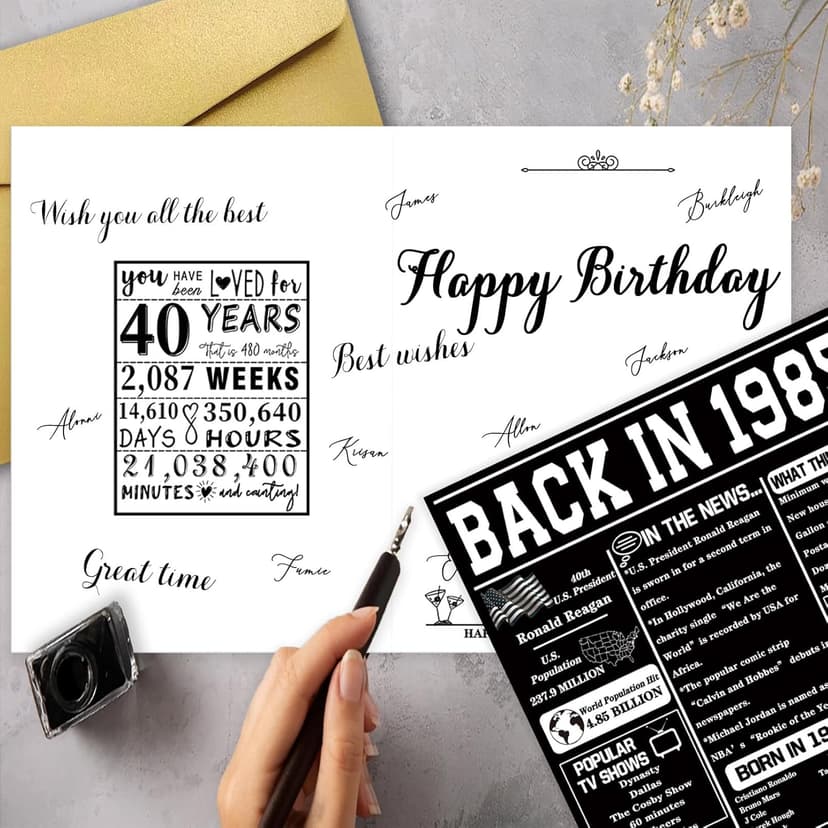 Wish you all the best
you HAVE been LOVED for
40 YEARS
That is 480 months
2,087 WEEKS
14,610 DAYS 350,640 HOURS
21,038,400
MINUTES and counting!
Alonni
Great time
Fumie
James
Burkleigh
Happy Birthday
Best wishes
Jackson
Allon
Kiisan
BACK IN 1985
40th
U.S. President
Ronald Reagan
U.S.
Population
237.9 MILLION
World Population Hit
4.85 BILLION
POPULAR
TV SHOWS
Dynasty
Dallas
The Cosby Show
60 minutes
IN THE NEWS...
*U.S. President Ronald Reagan
is sworn in for a second term in
office.
*In Hollywood, California, the
charity single "We Are the
World" is recorded by USA for
Africa.
*The popular comic strip
"Calvin and Hobbes" debuts in
newspapers.
*Michael Jordan is named as
NBA's "Rookie of the
BORN IN
Cristiano Ronaldo
Bruno Mars
J Cole
WHAT
Minimum
New
Gallon